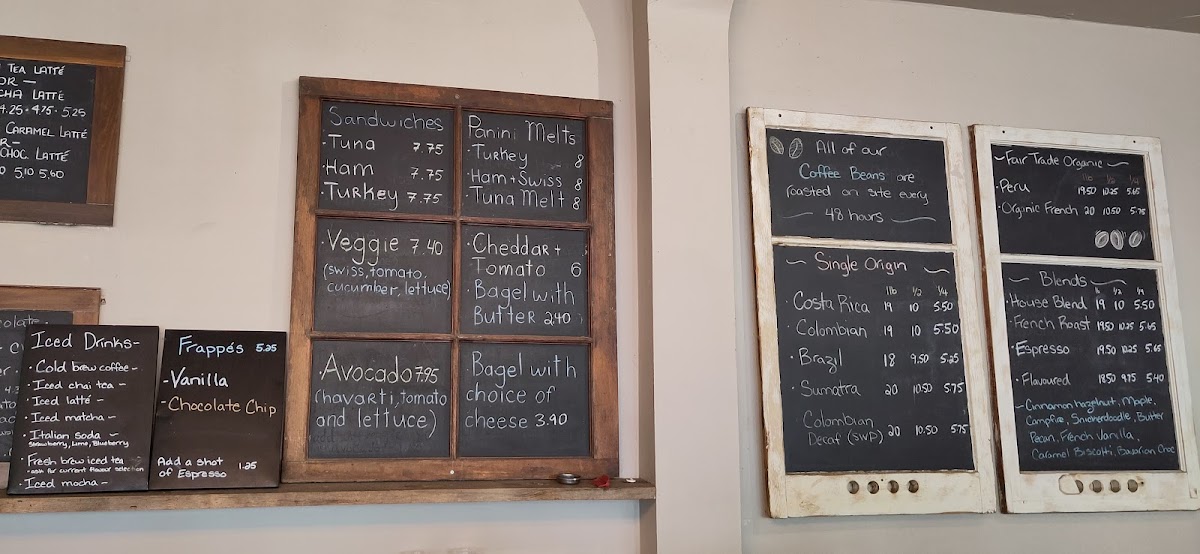 TEA LATTÉ
OR —
CHA LATTÉ
4.25 · 4.75 · 5.25
CARAMEL LATTÉ
CHOC. LATTÉ
5.10 5.60
Iced Drinks-
· Cold brew coffee -
· Iced chai tea -
· Iced latté -
· Iced matcha -
· Italian soda -
Strawberry, Lime, Blueberry
· Fresh brew iced tea
*ask for current flavour selection
· Iced mocha -
Frappés 5.25
-Vanilla
-Chocolate Chip
Add a shot
of Espresso 1.25
Sandwiches
·Tuna 7.75
·Ham 7.75
·Turkey 7.75
·Veggie 7.40
(swiss, tomato,
cucumber, lettuce)
Avocado 7.95
(havarti, tomato
and lettuce)
Panini Melts
·Turkey 8
·Ham + Swiss 8
·Tuna Melt 8
·Cheddar +
Tomato 6
·Bagel with
Butter 2.40
Bagel with
choice of
cheese 3.90
All of our
Coffee Beans are
roasted on site every
48 hours
Single Origin
1lb 1/2 1/4
· Costa Rica 19 10 5.50
· Colombian 19 10 5.50
· Brazil 18 9.50 5.25
· Sumatra 20 10.50 5.75
· Colombian
Decaf (SWP) 20 10.50 5.75
Fair Trade Organic
1lb 1/2 1/4
·Peru 19.50 10.25 5.65
·Organic French 20 10.50 5.75
Blends
lb 1/2 1/4
·House Blend 19 10 5.50
·French Roast 19.50 10.25 5.65
·Espresso 19.50 10.25 5.65
·Flavoured 18.50 9.75 5.40
-Cinnamon hazelnut, Maple,
Campfire, Snickerdoodle, Butter
Pecan, French Vanilla,
Caramel Biscotti, Bavarian Choc